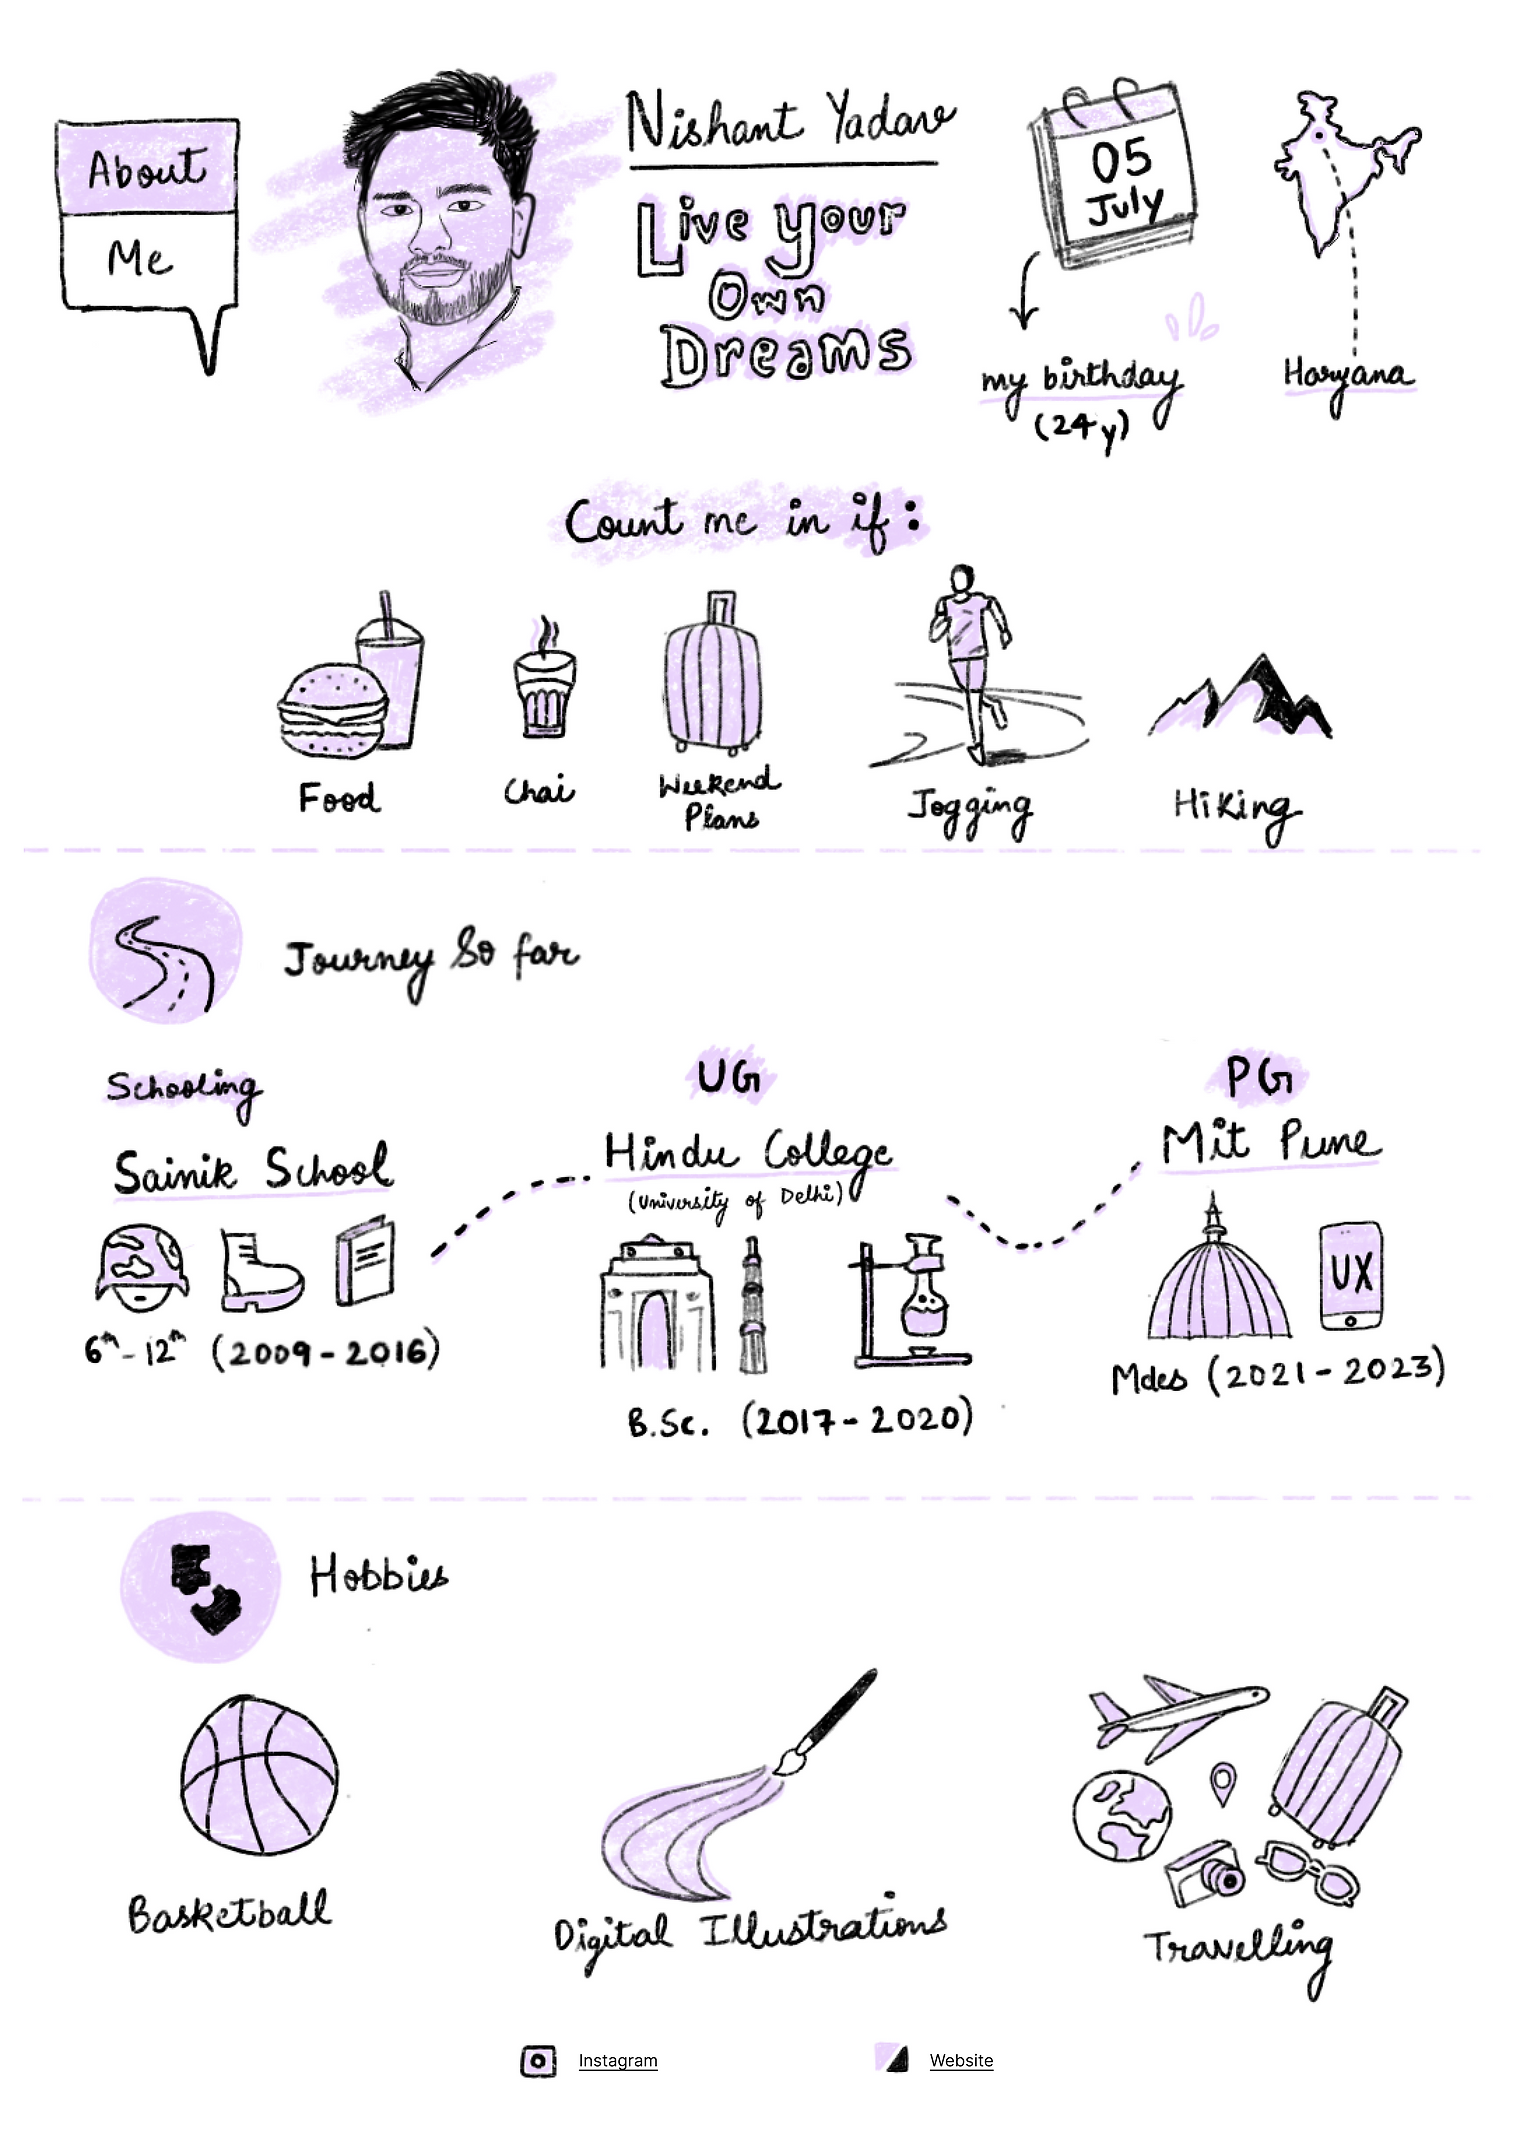 About
Me
Nishant Yadav
Live your
Own
Dreams
05
July
my birthday
(24y)
Haryana
Count me in if :
Food
Chai
Weekend
Plans
Jogging
Hiking
Journey So far
Schooling
Sainik School
6th - 12th (2009 - 2016)
UG
Hindu College
(University of Delhi)
B.Sc. (2017 - 2020)
PG
Mit Pune
UX
Mdes (2021 - 2023)
Hobbies
Basketball
Digital Illustrations
Travelling
Instagram
Website